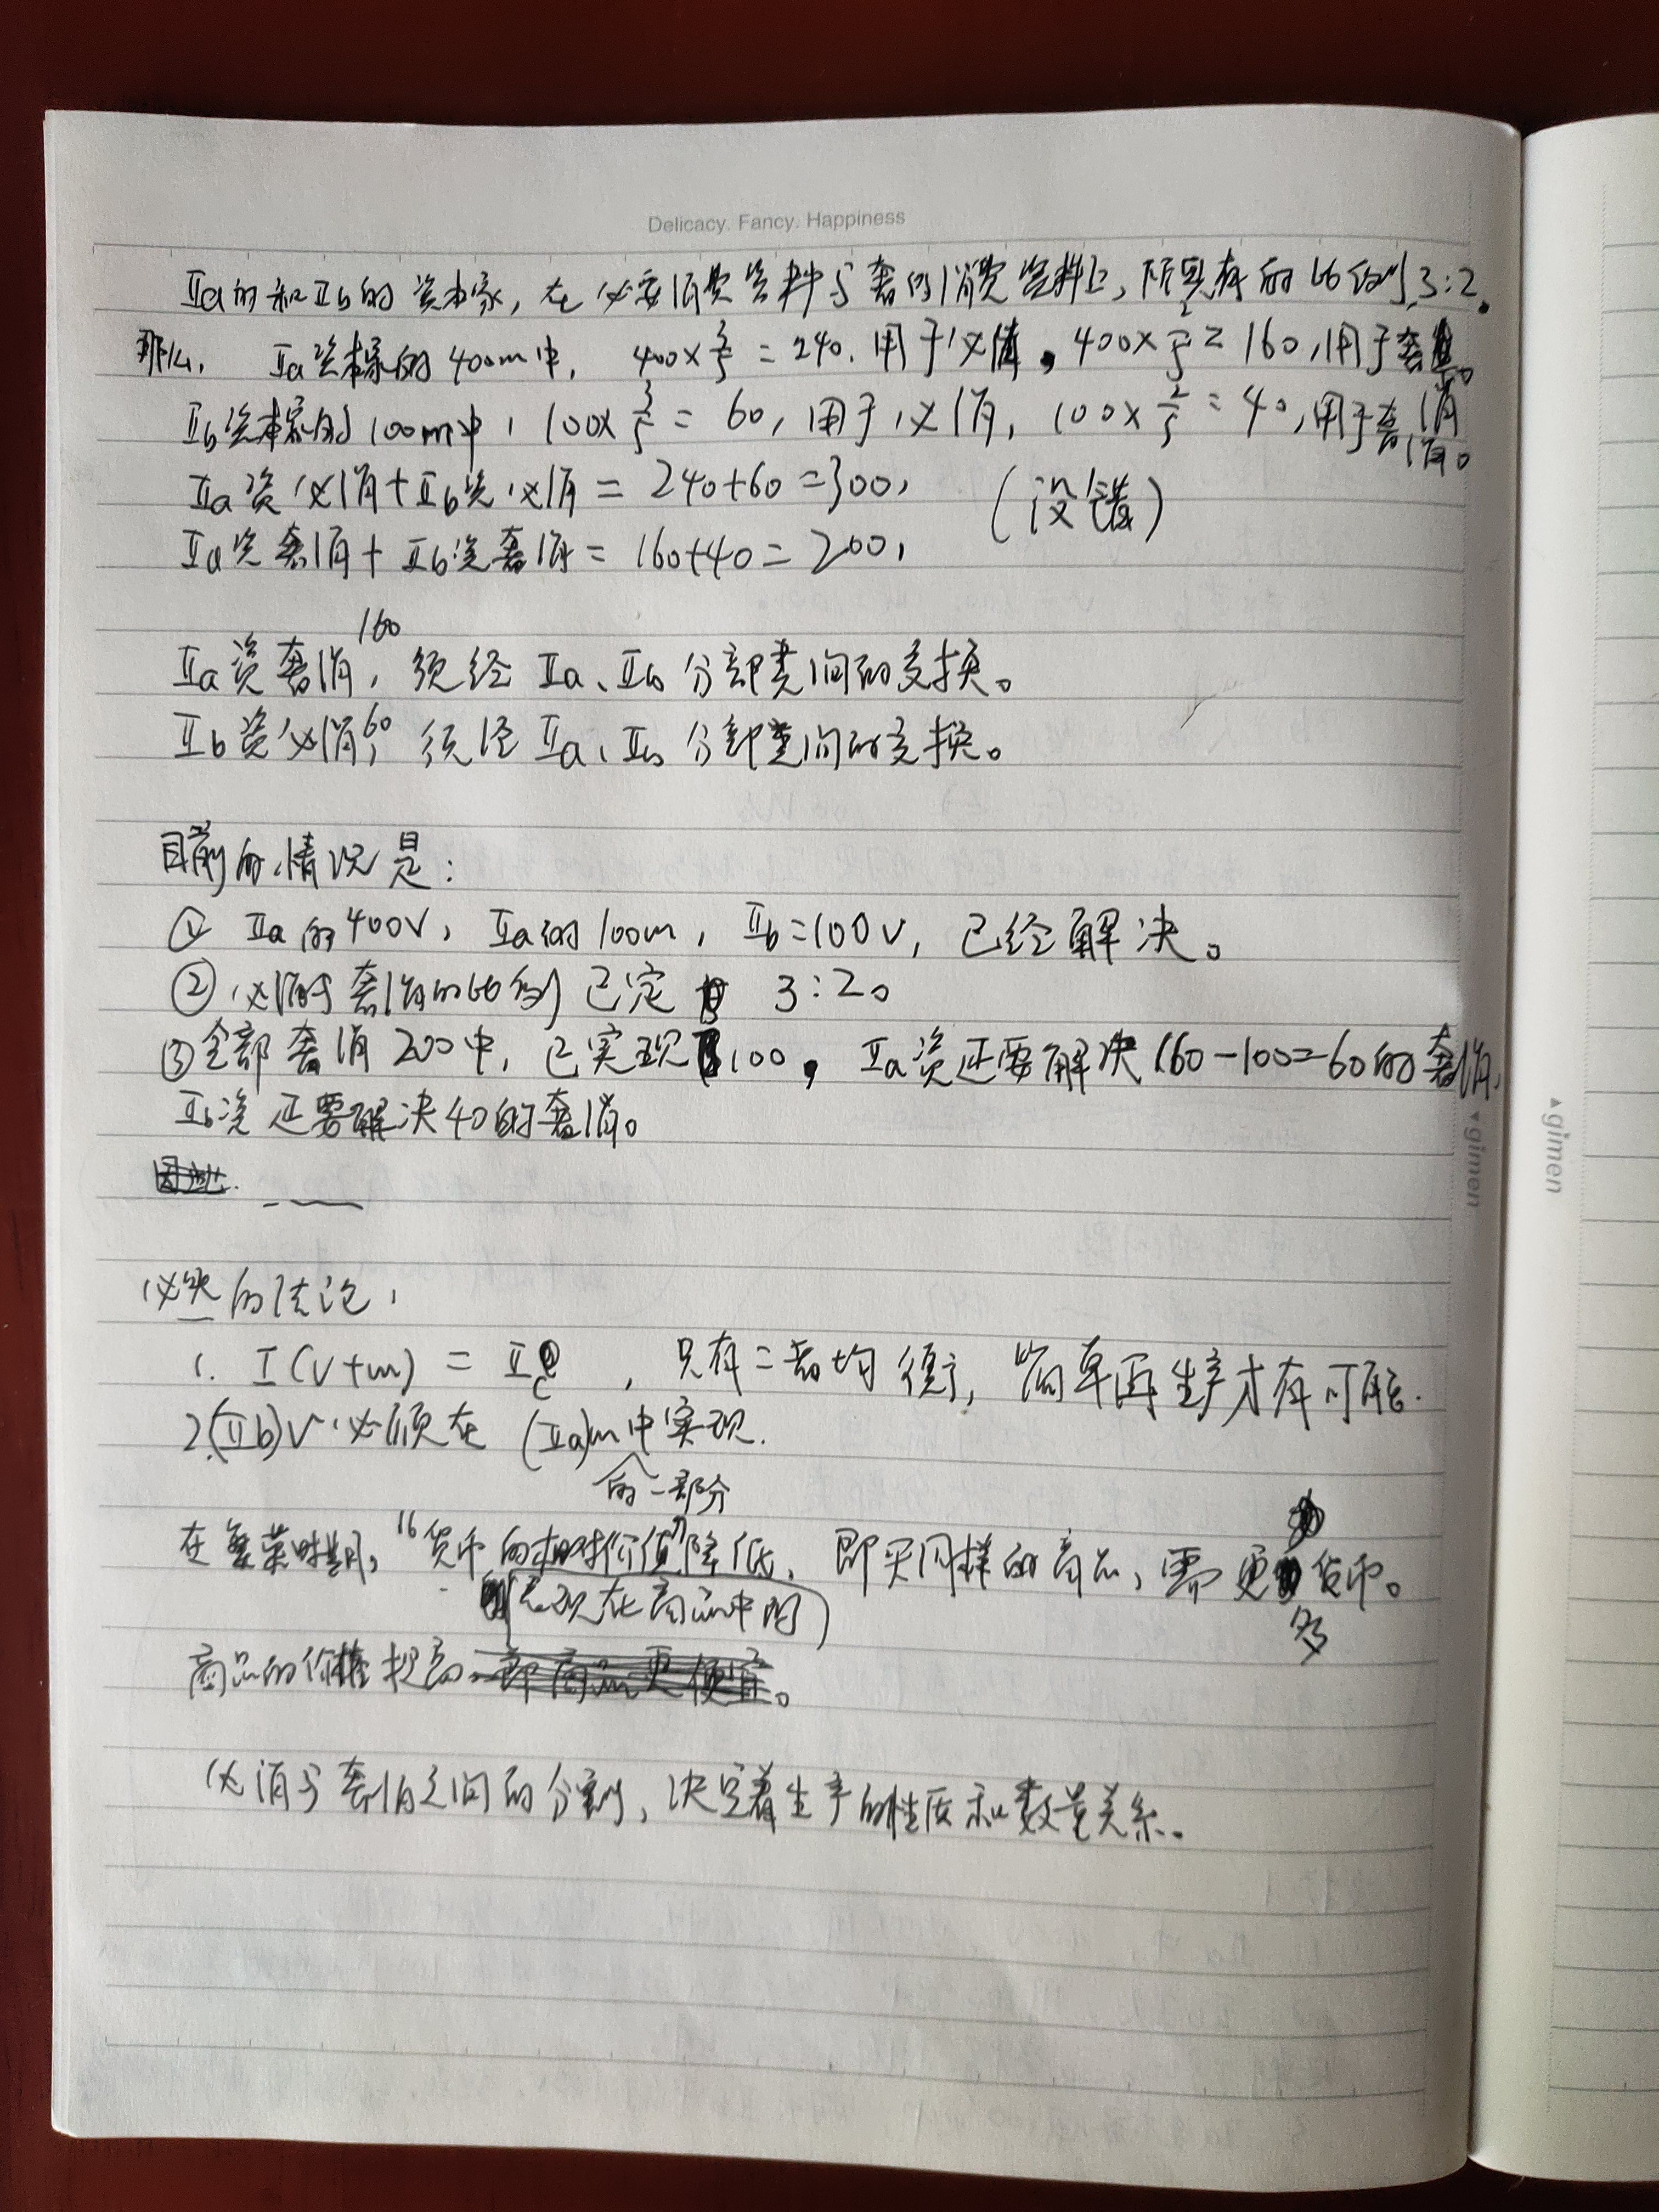 Delicacy. Fancy. Happiness
Ⅱa的和Ⅱb的资本家，在必要消费资料与奢侈消费资料上，所具有的比例为3:2。
那么，Ⅱa资本家的400m中，400×3/5=240，用于必消，400×2/5=160，用于奢消。
Ⅱb资本家的100m中，100×3/5=60，用于必消，100×2/5=40，用于奢消。
Ⅱa资必消+Ⅱb资必消=240+60=300，（没错）
Ⅱa资奢消+Ⅱb资奢消=160+40=200，
160
Ⅱa资奢消，须经Ⅱa、Ⅱb分部类间的交换。
Ⅱb资必消60，须经Ⅱa、Ⅱb分部类间的交换。
目前的情况是：
① Ⅱa的400v，Ⅱa的100m，Ⅱb=100v，已经解决。
②必消与奢消的比例已定 3:2。
③全部奢消200中，已实现100，Ⅱa资还要解决160-100=60的奢消，
Ⅱb资还要解决40的奢消。
必然的结论，
1. Ⅰ(v+m) = Ⅱc，只有二者均衡，简单再生产才有可能.
2.(Ⅱb)v必须在(Ⅱa)m中实现.
的一部分
在繁荣时期，“货币的相对价值”降低，即买同样的商品，需更多货币。
(表现在商品中的)
商品的价格提高。
必消与奢消之间的分割，决定着生产的性质和数量关系。
gimen
gimen